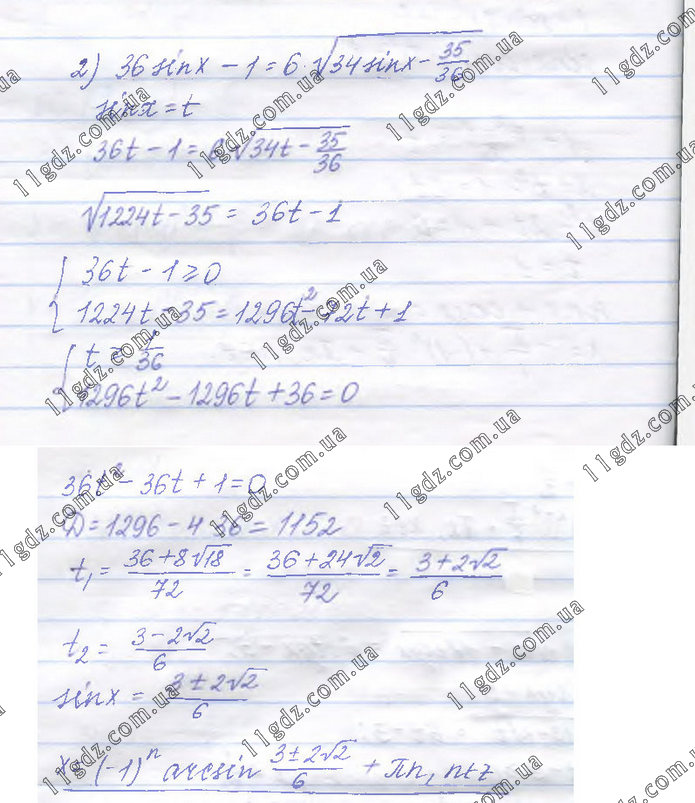 2) 36 sinx - 1 = 6·√(34 sinx - 35/36)
sinx = t
36t - 1 = 6√(34t - 35/36)
√(1224t - 35) = 36t - 1
{ 36t - 1 ≥ 0
1224t - 35 = 1296t² - 72t + 1
{ t ≥ 1/36
1296t² - 1296t + 36 = 0
36t² - 36t + 1 = 0
D = 1296 - 4·36 = 1152
t₁ = (36 + 8√18)/72 = (36 + 24√2)/72 = (3 + 2√2)/6
t₂ = (3 - 2√2)/6
sinx = (3 ± 2√2)/6
x = (-1)ⁿ arcsin (3 ± 2√2)/6 + πn, n∈z
11gdz.com.ua
11gdz.com.ua
11gdz.com.ua
11gdz.com.ua
11gdz.com.ua
11gdz.com.ua
11gdz.com.ua
11gdz.com.ua
11gdz.com.ua
11gdz.com.ua
11gdz.com.ua
11gdz.com.ua